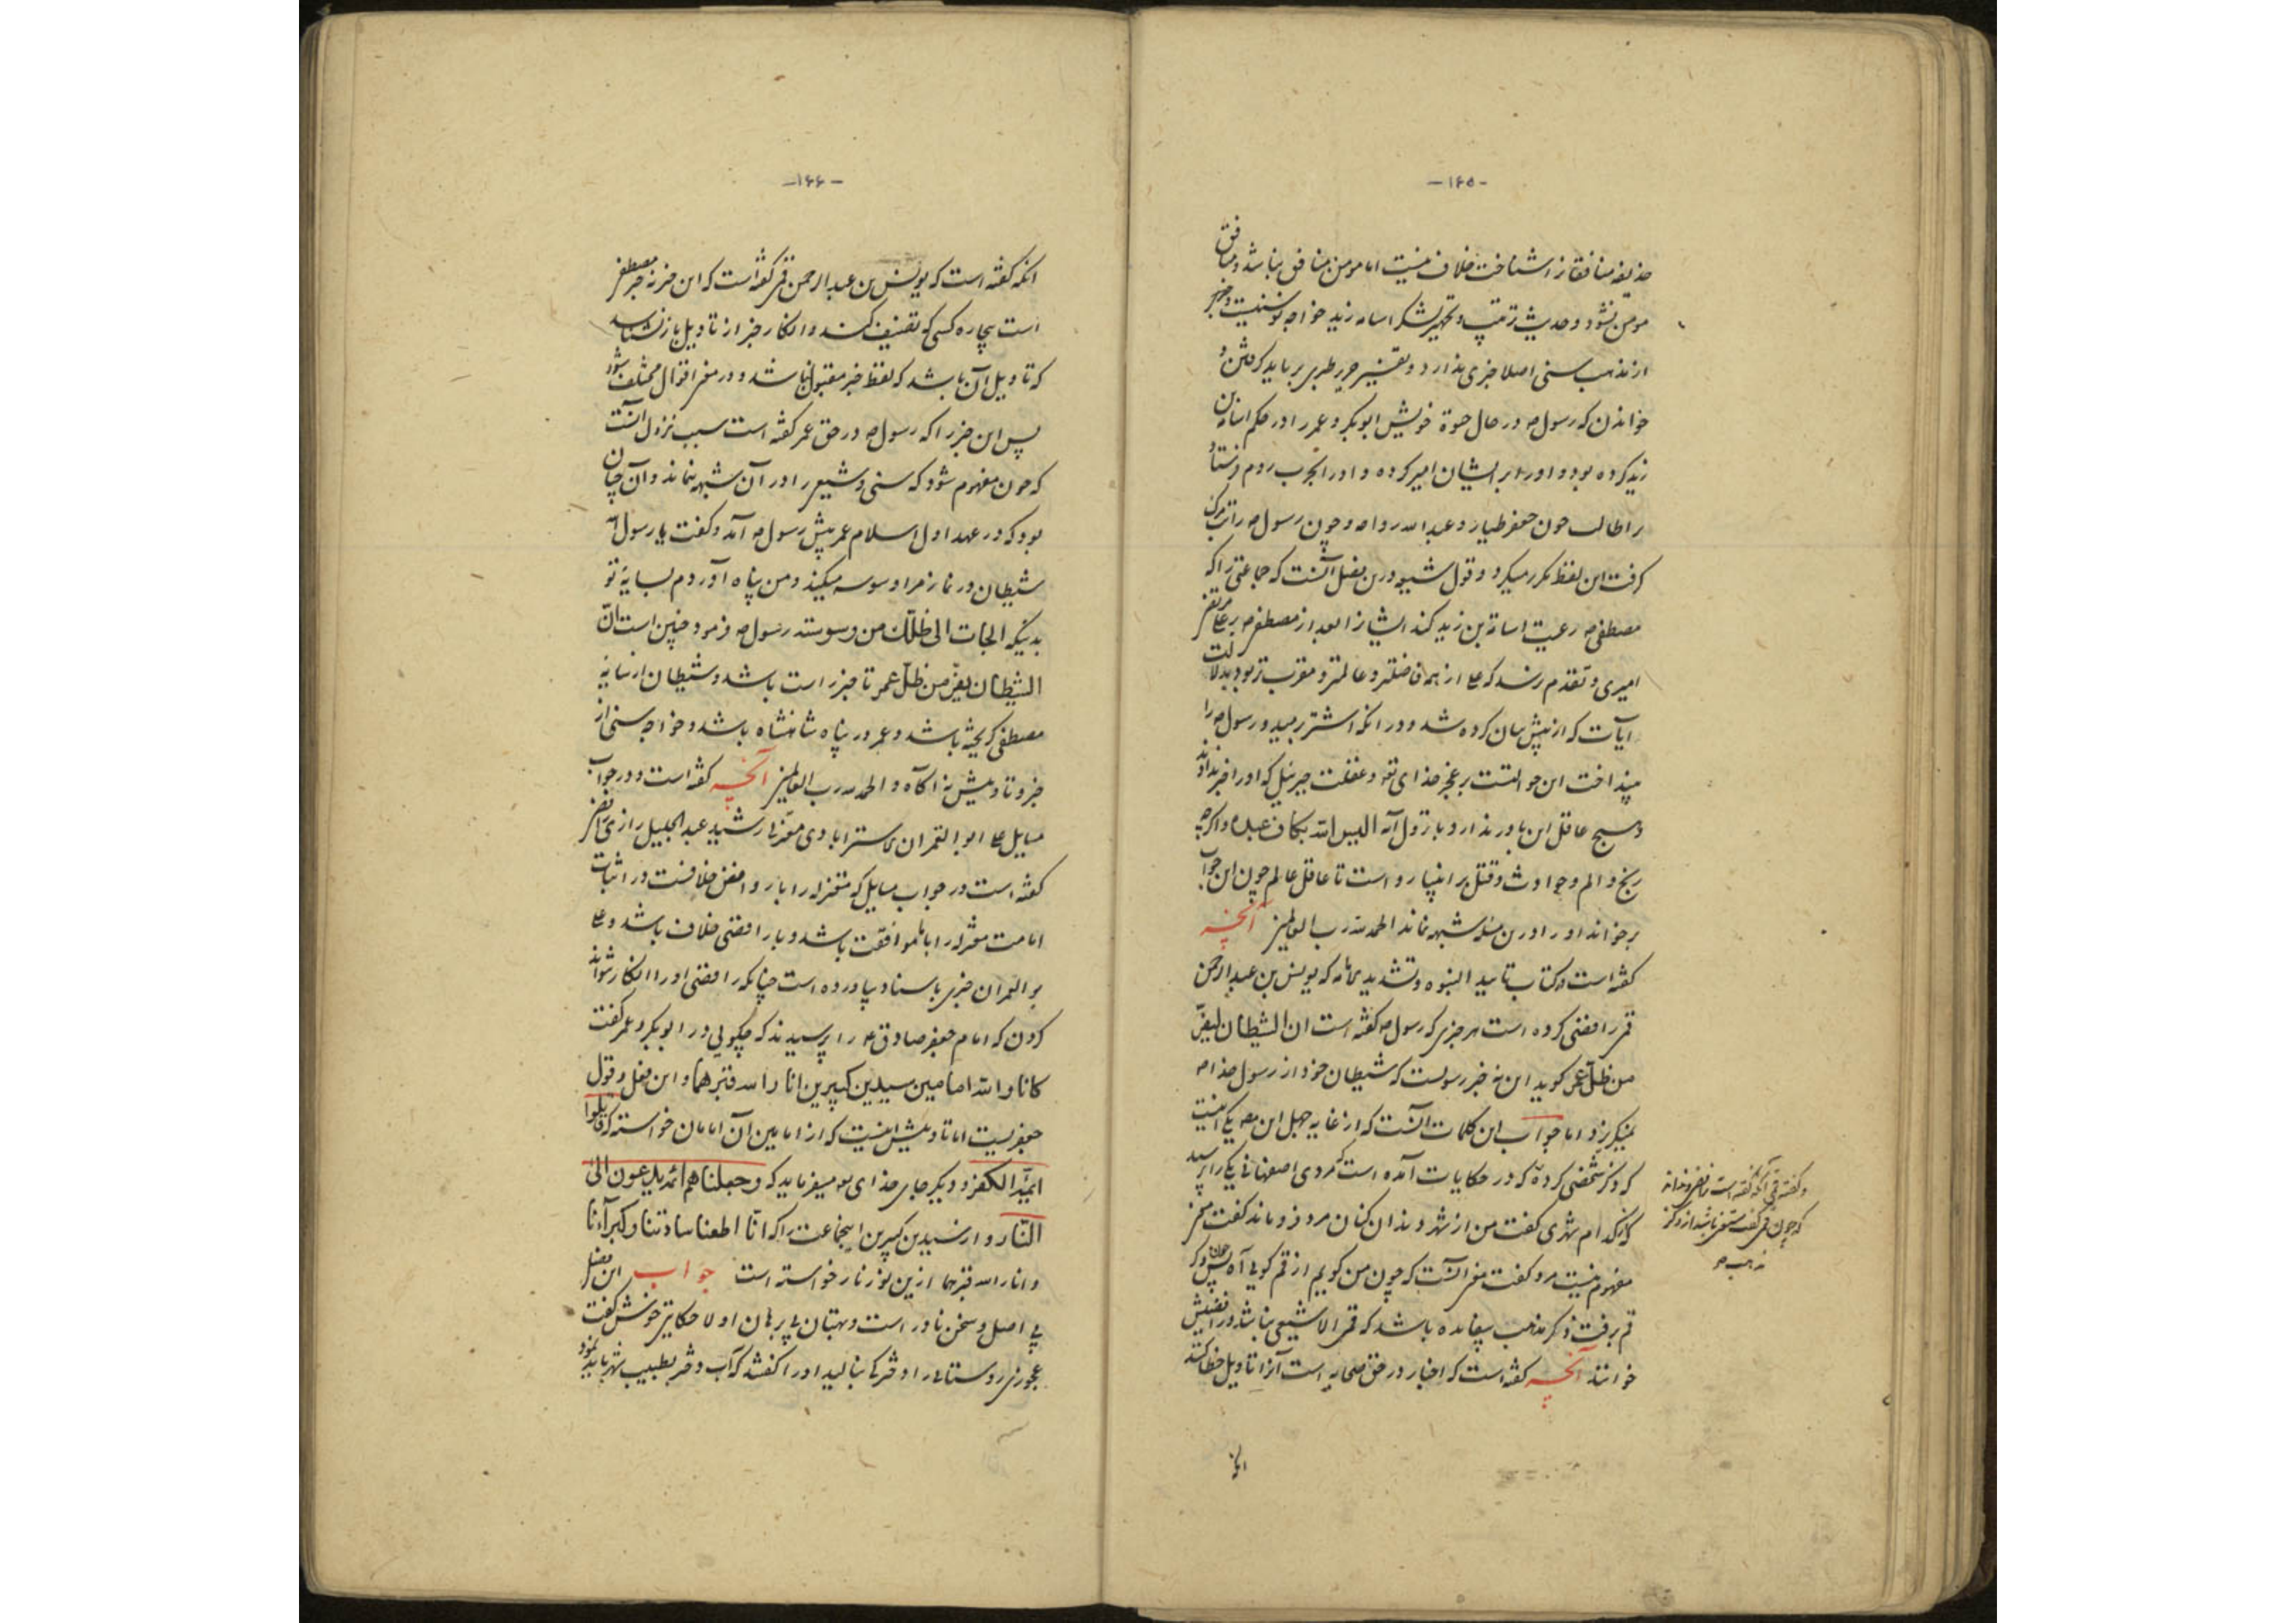 -۱۶۵-
حذیفه منافقانرا شناخت خلاف نیست اما مومن منافق نباشد و منافق
مومن نشود و حدیث ترتیب و تجهیز لشکر اسامه زید خواجه نو سنیست و خبر
از مذهب سنی اصلا خبری ندارد و تفسیر جریر طبری برباید گرفتن و
خواندن که رسول ص در حال حیوة خویش ابوبکر و عمر را در حکم اسامة بن
زید کرده بود و او را بر ایشان امیر کرده و او را بحرب روم فرستاد
را طالب چون جعفر طیار و عبدالله رواحه و چون رسول ص را تب مرگ
گرفت این لفظ مکرر میکرد و قول شیعه درین فصل آنست که جماعتی را که
مصطفی ص رعیت اسامة بن زید کند ایشانرا بعد از مصطفی ص بر علی مرتضی
امیری و تقدم رسد که علی از همه فاضلتر و عالمتر و مقرب تر بود بدلالت
آیات که از پیش بیان کرده شد و در آنکه اشتر رمید و رسول ص را
میانداخت این حوالتست بر عجز خدای تعه و غفلت جبرئیل که او را خبر ندادند
و هیچ عاقل این باور ندارد با نزول آیه الیس الله بکاف عبده و اگرچه
رنج و الم و حوادث و قتل بر انبیا رواست تا عاقل عالم چون این جواب
برخواند او را درین مسئله شبهه نماند الحمد لله رب العالمین آنچه
گفته است در کتاب تایید النبوه و تشدید که یونس بن عبدالرحمن
قمی رافضی کرده است هر خبری که رسول ص گفته است ان الشیطان لیفر
من ظل عمر گوید این نه خبر رسولست که شیطان خود از رسول خدا ص
نمیگریزد اما جواب این کلمات آنست که از غایه جهل این مصه یکی اینست
که ذکر شخصی کرده که در حکایات آمده است که مردی اصفهانی یکی را پرسید
که از کدام شهری گفت من از شهر دندان کنان مرد فرو ماند گفت سخن
مفهوم نیست مرد گفت معنی آنست که چون من گویم از قم گویی آه پس چون ذکر
قم برفت ذکر مذهب بیفایده باشد که قمی الا شیعی نباشد و رافضیش
خوانند آنچه گفته است که اخبار در حق صحابه است آنرا تاویل خطا کنند
و گفته قمی آنکه گفته است رافضی و ندانسته
که چون قمی گفت مستغنی باشد از ذکر
مذهب ص
-۱۶۶-
آنکه گفته است که یونس بن عبدالرحمن قمی گفته است که این خبر نه خبر مصطفی
است بیچاره کسی که تصنیف کند و انکار خبر از تاویل باز نشناسد
که تاویل آن باشد که لفظ خبر مقبول باشد و در معنی اقوال مختلف شود
پس این خبر را که رسول ص در حق عمر گفته است سبب نزول آنست
که چون مفهوم شود که سنی و شیعی را در آن شبهه نماند و آن چنان
بود که در عهد اول اسلام عمر پیش رسول ص آمد و گفت یا رسول الله
شیطان در نماز مرا وسوسه میکند و من پناه آوردم بسایۀ تو
بدینکه الجات الی ظلک من وسوسته رسول ص فرمود چنین است ان
الشیطان یفر من ظل عمر تا خبر راست باشد و شیطان از سایه
مصطفی گریخته باشد و عمر در پناه شاهنشاه باشد و خواجه سنی از
خبر و تاویلش نه آگاه و الحمد لله رب العالمین آنچه گفته است و در جواب
مسایل علی ابوالقمران استرابادی معتزلی رشید عبدالجلیل رازی رافضی
گفته است در جواب مسایل که معتزله را با روافض خلافست در اثبات
امامت معتزله را با ما موافقت باشد و با رافضی خلاف باشد و علی
بو القمران خبری باسناد بیاورده است چنانکه رافضی او را انکار نتواند
کردن که امام جعفر صادق ع را پرسیدند که چگویی در ابوبکر و عمر گفت
کانا والله امامین سیدین کبیرین انار الله قبرهما و این فصل و قول
جعفریست اما تاویلش اینست که از امامین آن امامان خواسته که فقاتلوا
ایمة الکفر و دیگر جای خدای تعه میفرماید که وجعلناهم ائمة یدعون الی
النار و از سیدین کبیرین اینجماعت را که انا اطعنا سادتنا و کبراءنا
و انار الله قبرهما ازین نور نار خواسته است جواب این فصل
بی اصل و سخن نادر است و بهتان بی برهان اولا حکایتی خوش گفت
عجوزی روستایی را دختر کی بنالید او را گفتند که آب دختر بطبیب شهر باید نمود